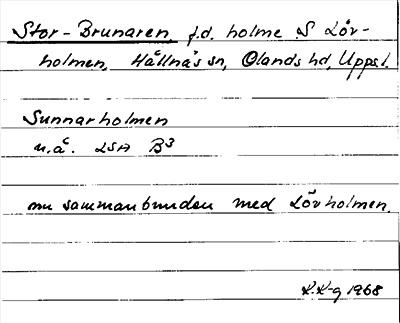 Stor-Brunaren f.d. holme S Löv-
holmen, Hållnäs sn, Olands hd, Uppsl.
Sunnarholmen
u.å. LSA B3
nu sammanbunden med Lövholmen.
K.K-g 1968